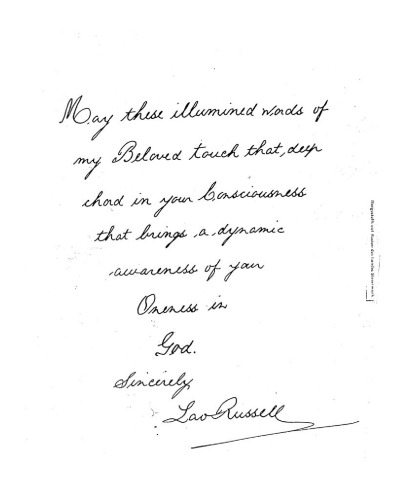 May these illumined words of
my Beloved touch that, deep
chord in your Consciousness
that brings a dynamic
awareness of your
Oneness in
God.
Sincerely,
Lao Russell